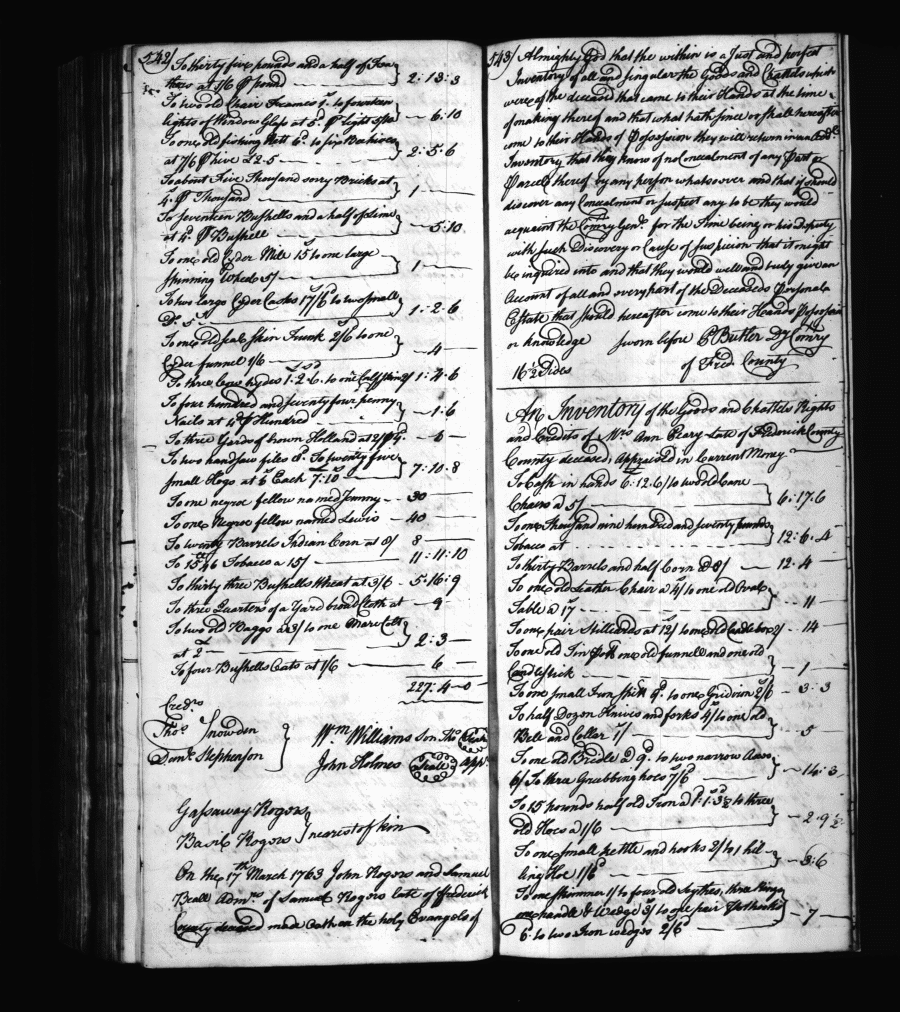 542/
To thirty five pounds and a half of Fea
thers at 1/6 ℘ pound 2:13:3
To two old Chair Frames 1/. to fourteen
lights of Window Glass at 5d. ℘ light 5/10 6:10
To one old fishing Nett 6d. to six Beehives
at 7/6 ℘ hive £2-5 2:5:6
To about Five Thousand sorry Bricks at
4/. ℘ Thousand 1
To seventeen Bushells and a half of Lime
at 4d. ℘ Bushell 5:10
To one old Cyder Mill 15/ to one large
Spinning Wheele 5/ 1
To two large Cyder Casks 17/6 to two small
Do. 5/ 1:2:6
To one old seal skin Trunk 2/6 to one
Cyder funnel 1/6 4
To three Cow hydes 1:2:6. to one Calf skin 2/ 1:4:6
To four hundred and seventy four penny
Nails at 4d ℘ Hundred 1:6
To three Yards of brown Holland at 2/ ℘ 6
To two handsaw files 8d. To twenty five
small Hogs at 6/ Each 7:10 7:10:8
To one negroe fellow named Jenny 30
To one Negroe fellow named Lewis 40
To twenty Barrels Indian Corn at 8/ 8
To 1546 Tobacco a 15/ 11:11:10
To thirty three Bushells Wheat at 3/6 5:16:9
To three Quarters of a Yard broad Cloth at 9
To two old Naggs a 3/ to one Mare Colt
at 2 2:3
To four Bushells Oats at 1/6 6
227:4-0
Credrs.
Thos. Snowden
Danl. Stephenson
Wm Williams Son Thos Seal
John Holmes Seale Apprs
Gassaway Rogers
Basil Rogers nearest of kin
On the 17th March 1763 John Rogers and Samuel
Beall Admrs. of Samuel Rogers late of Frederick
County deceased made Oath on the holy Evangels of
543/
Almighty God that the within is a Just and perfect
Inventory of all and singular the Goods and Chattels which
were of the deceased that came to their Hands at the time
of making thereof and that what hath since or shall hereafter
come to their Hands or Possession they will return in an additl
Inventory that they know of no Concealment of any Part or
Parcel thereof by any person whatsoever and that if should
discover any Concealment or suspect any to be they would
acquaint the Comry Genl. for the Time being or his Deputy
with such Discovery or Cause of suspicion that it might
be inquired into and that they would well and truly give an
Account of all and every part of the Deceaseds Personal
Estate that should hereafter come to their Hands Possession
or knowledge sworn before P Butler Dy Comry
16½ Sides of Fred. County
An Inventory of the Goods and Chattels Rights
and Credits of Mrs Ann Peary Late of Frederick County
County deceased, Appraised in Current Money
To Cash in hands 6:12.6/ to two old Cane
Chairs a 5/ 6:17.6
To one Thousand nine hundred and seventy pounds
Tobacco at 12:6.4
To thirty Barrels and half Corn a 8/ 12.4
To one old Leather Chair a 4/ to one old Oval
Table a 17 11
To one pair Stilleards at 12/ to one old Candle box 2/ 14
To one old Tin one old funnel and one old
Candlestick 1
To one small Iron spitt 9d. to one Gridiron 2/6 3:3
To half Dozen Knives and forks 4/ to one old
Bell and Collar 1/ 5
To one old Bridle a 9d. to two narrow Axes
6/ To three Grubbing hoes 7/6 14:3
To 15 pounds half old Iron a 1:3½ to three
old Hoes a 1/6 2.9½
To one small kettle and hooks 2/ to 1 hil
ling Hoe 1/6 3:6
To one skimmer 1/ to four old Scythes, three Rings
one handle & Wedge 3/ to one pair Pothooks
6d. to two Iron wedges 2/6 7